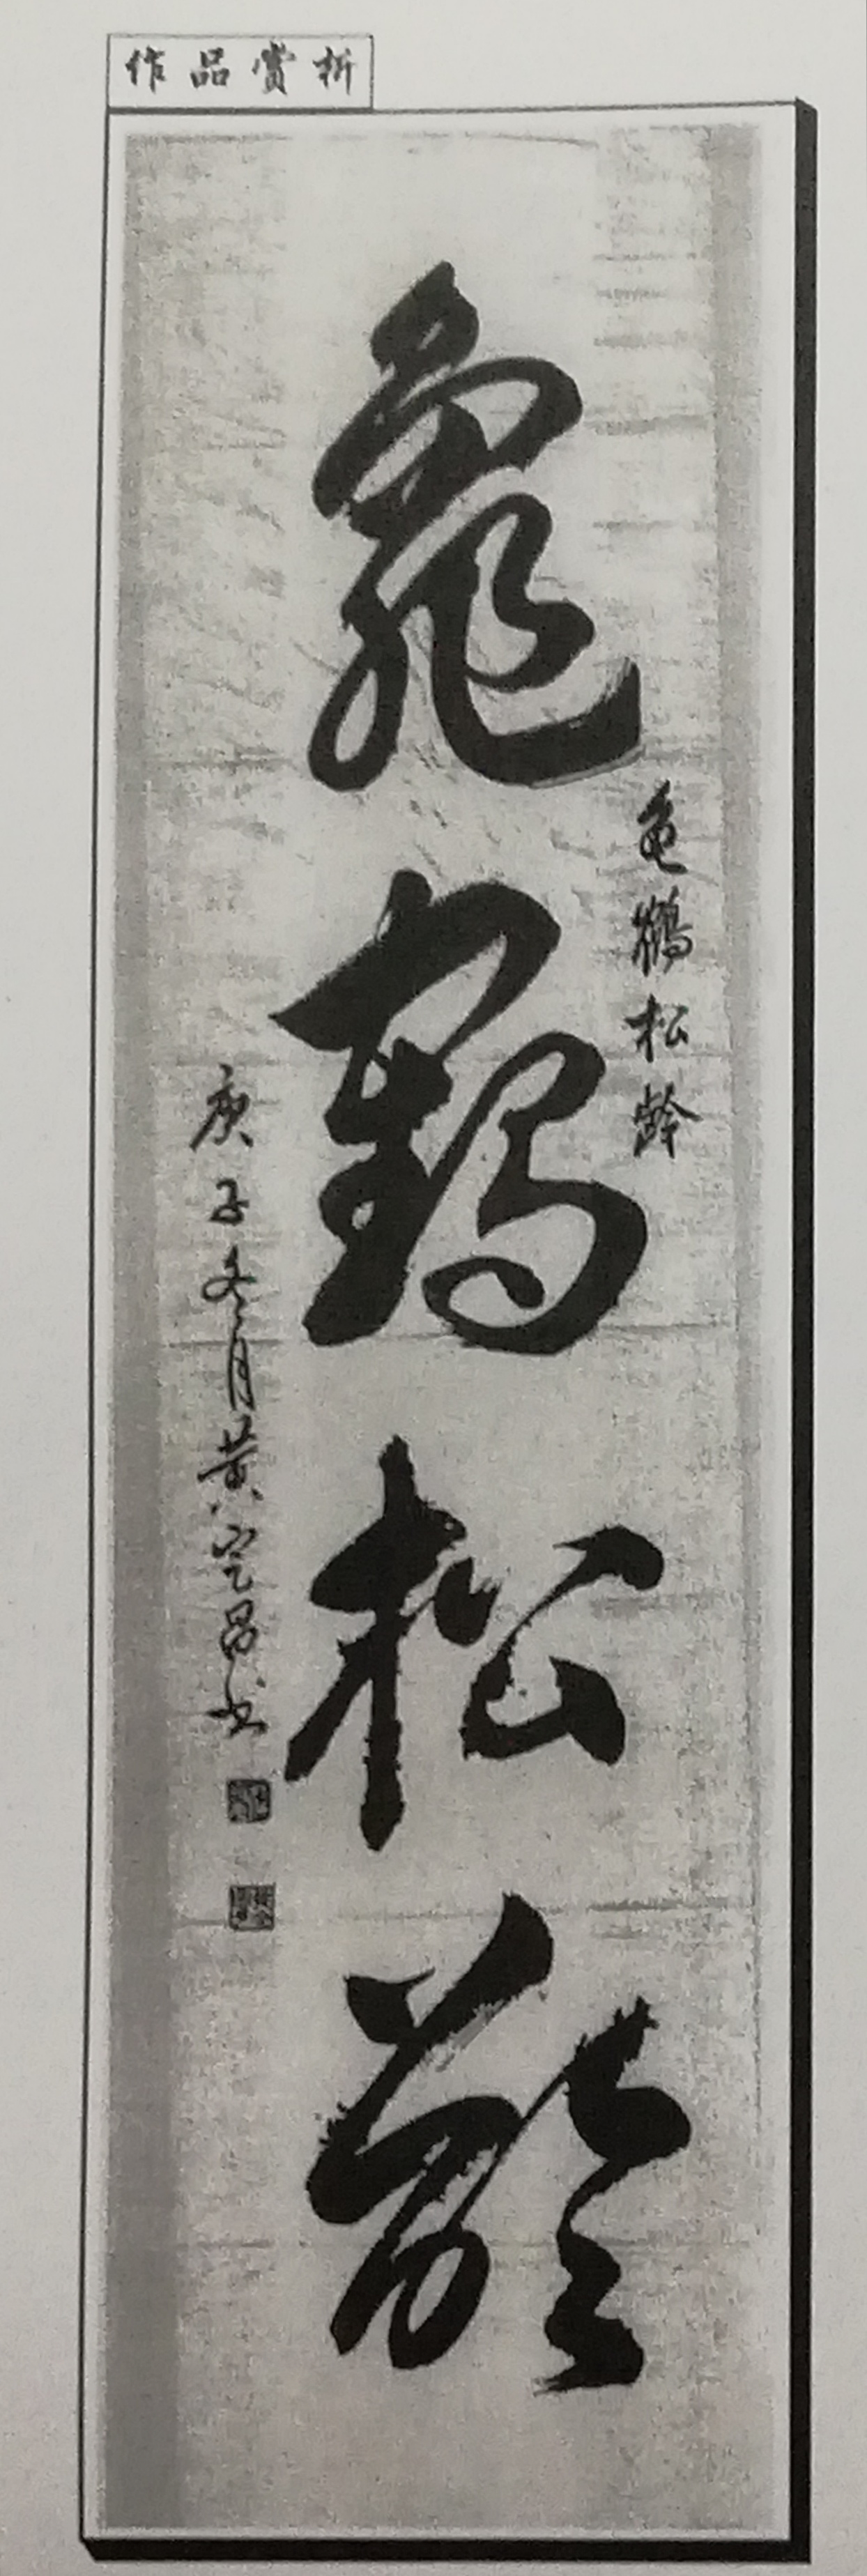 作品赏析
龜鶴松齡
龟鹤松龄
庚子冬月黄定昌书